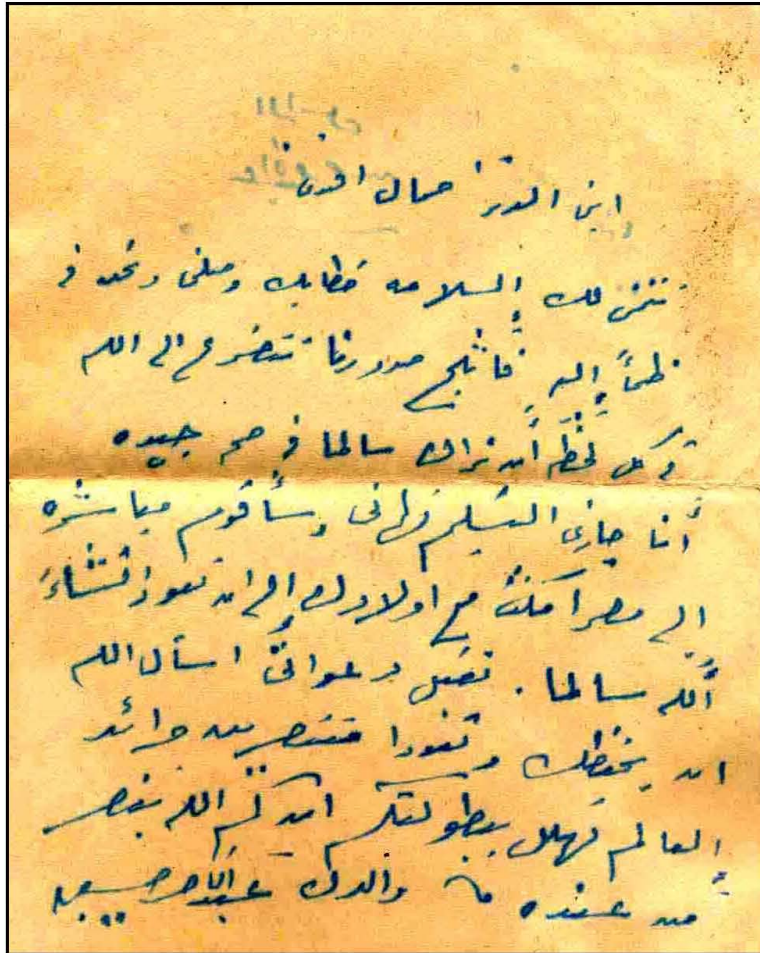 ابنى العزيز جمال افندى
نتمنى لك السلامه خطابك وصلنى ونحن فى
ظمأ إليه فأثلج صدورنا نتضرع الى الله
فى كل لحظه أن نراك سالما فى صحه جيده
أنا جارى التسليم نهائى وسأقوم مباشره
الى مصر أمكث مع اولادك الى ان تعود إنشاء
الله سالما . تقبل دعواتى اسأل الله
ان يحفظك وتعودا منتصرين جرائد
العالم تهلل ببطولتكم أيدكم الله بنصر
من عنده والدك عبد الناصر حسين